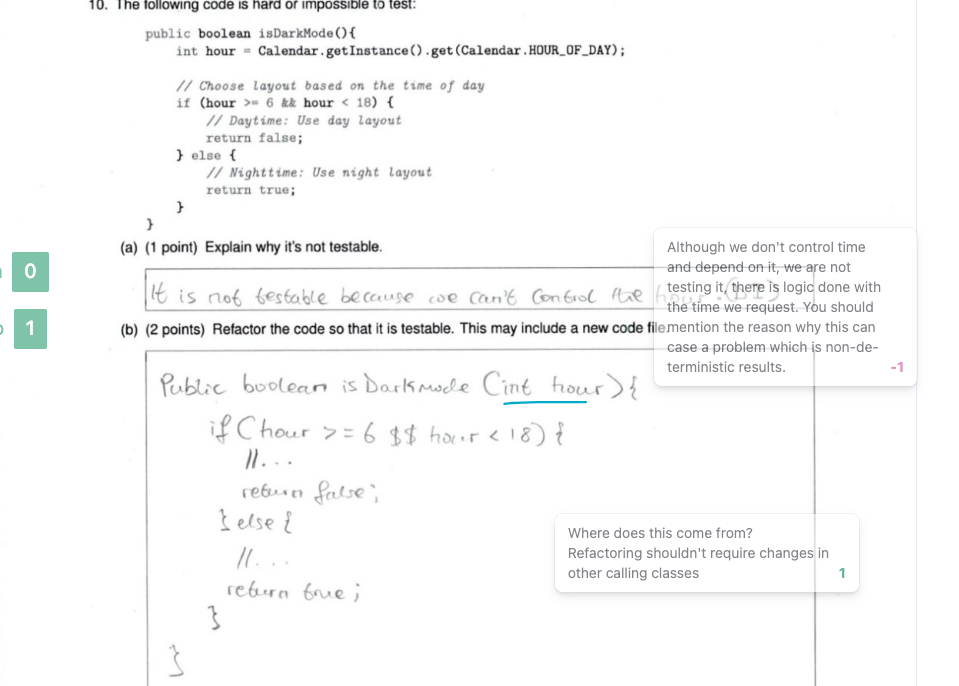 10. The following code is hard or impossible to test:
public boolean isDarkMode(){
int hour = Calendar.getInstance().get(Calendar.HOUR_OF_DAY);
// Choose layout based on the time of day
if (hour >= 6 && hour < 18) {
// Daytime: Use day layout
return false;
} else {
// Nighttime: Use night layout
return true;
}
}
(a) (1 point) Explain why it's not testable.
0
It is not testable because we can't control the hour. (DI)
Although we don't control time
and depend on it, we are not
testing it, there is logic done with
the time we request. You should
mention the reason why this can
case a problem which is non-de-
terministic results.
-1
1
(b) (2 points) Refactor the code so that it is testable. This may include a new code file.
Public boolean isDarkmode (int hour) {
if (hour >= 6 $$ hour < 18) {
//...
return false;
} else {
//...
return true;
}
}
Where does this come from?
Refactoring shouldn't require changes in
other calling classes
1